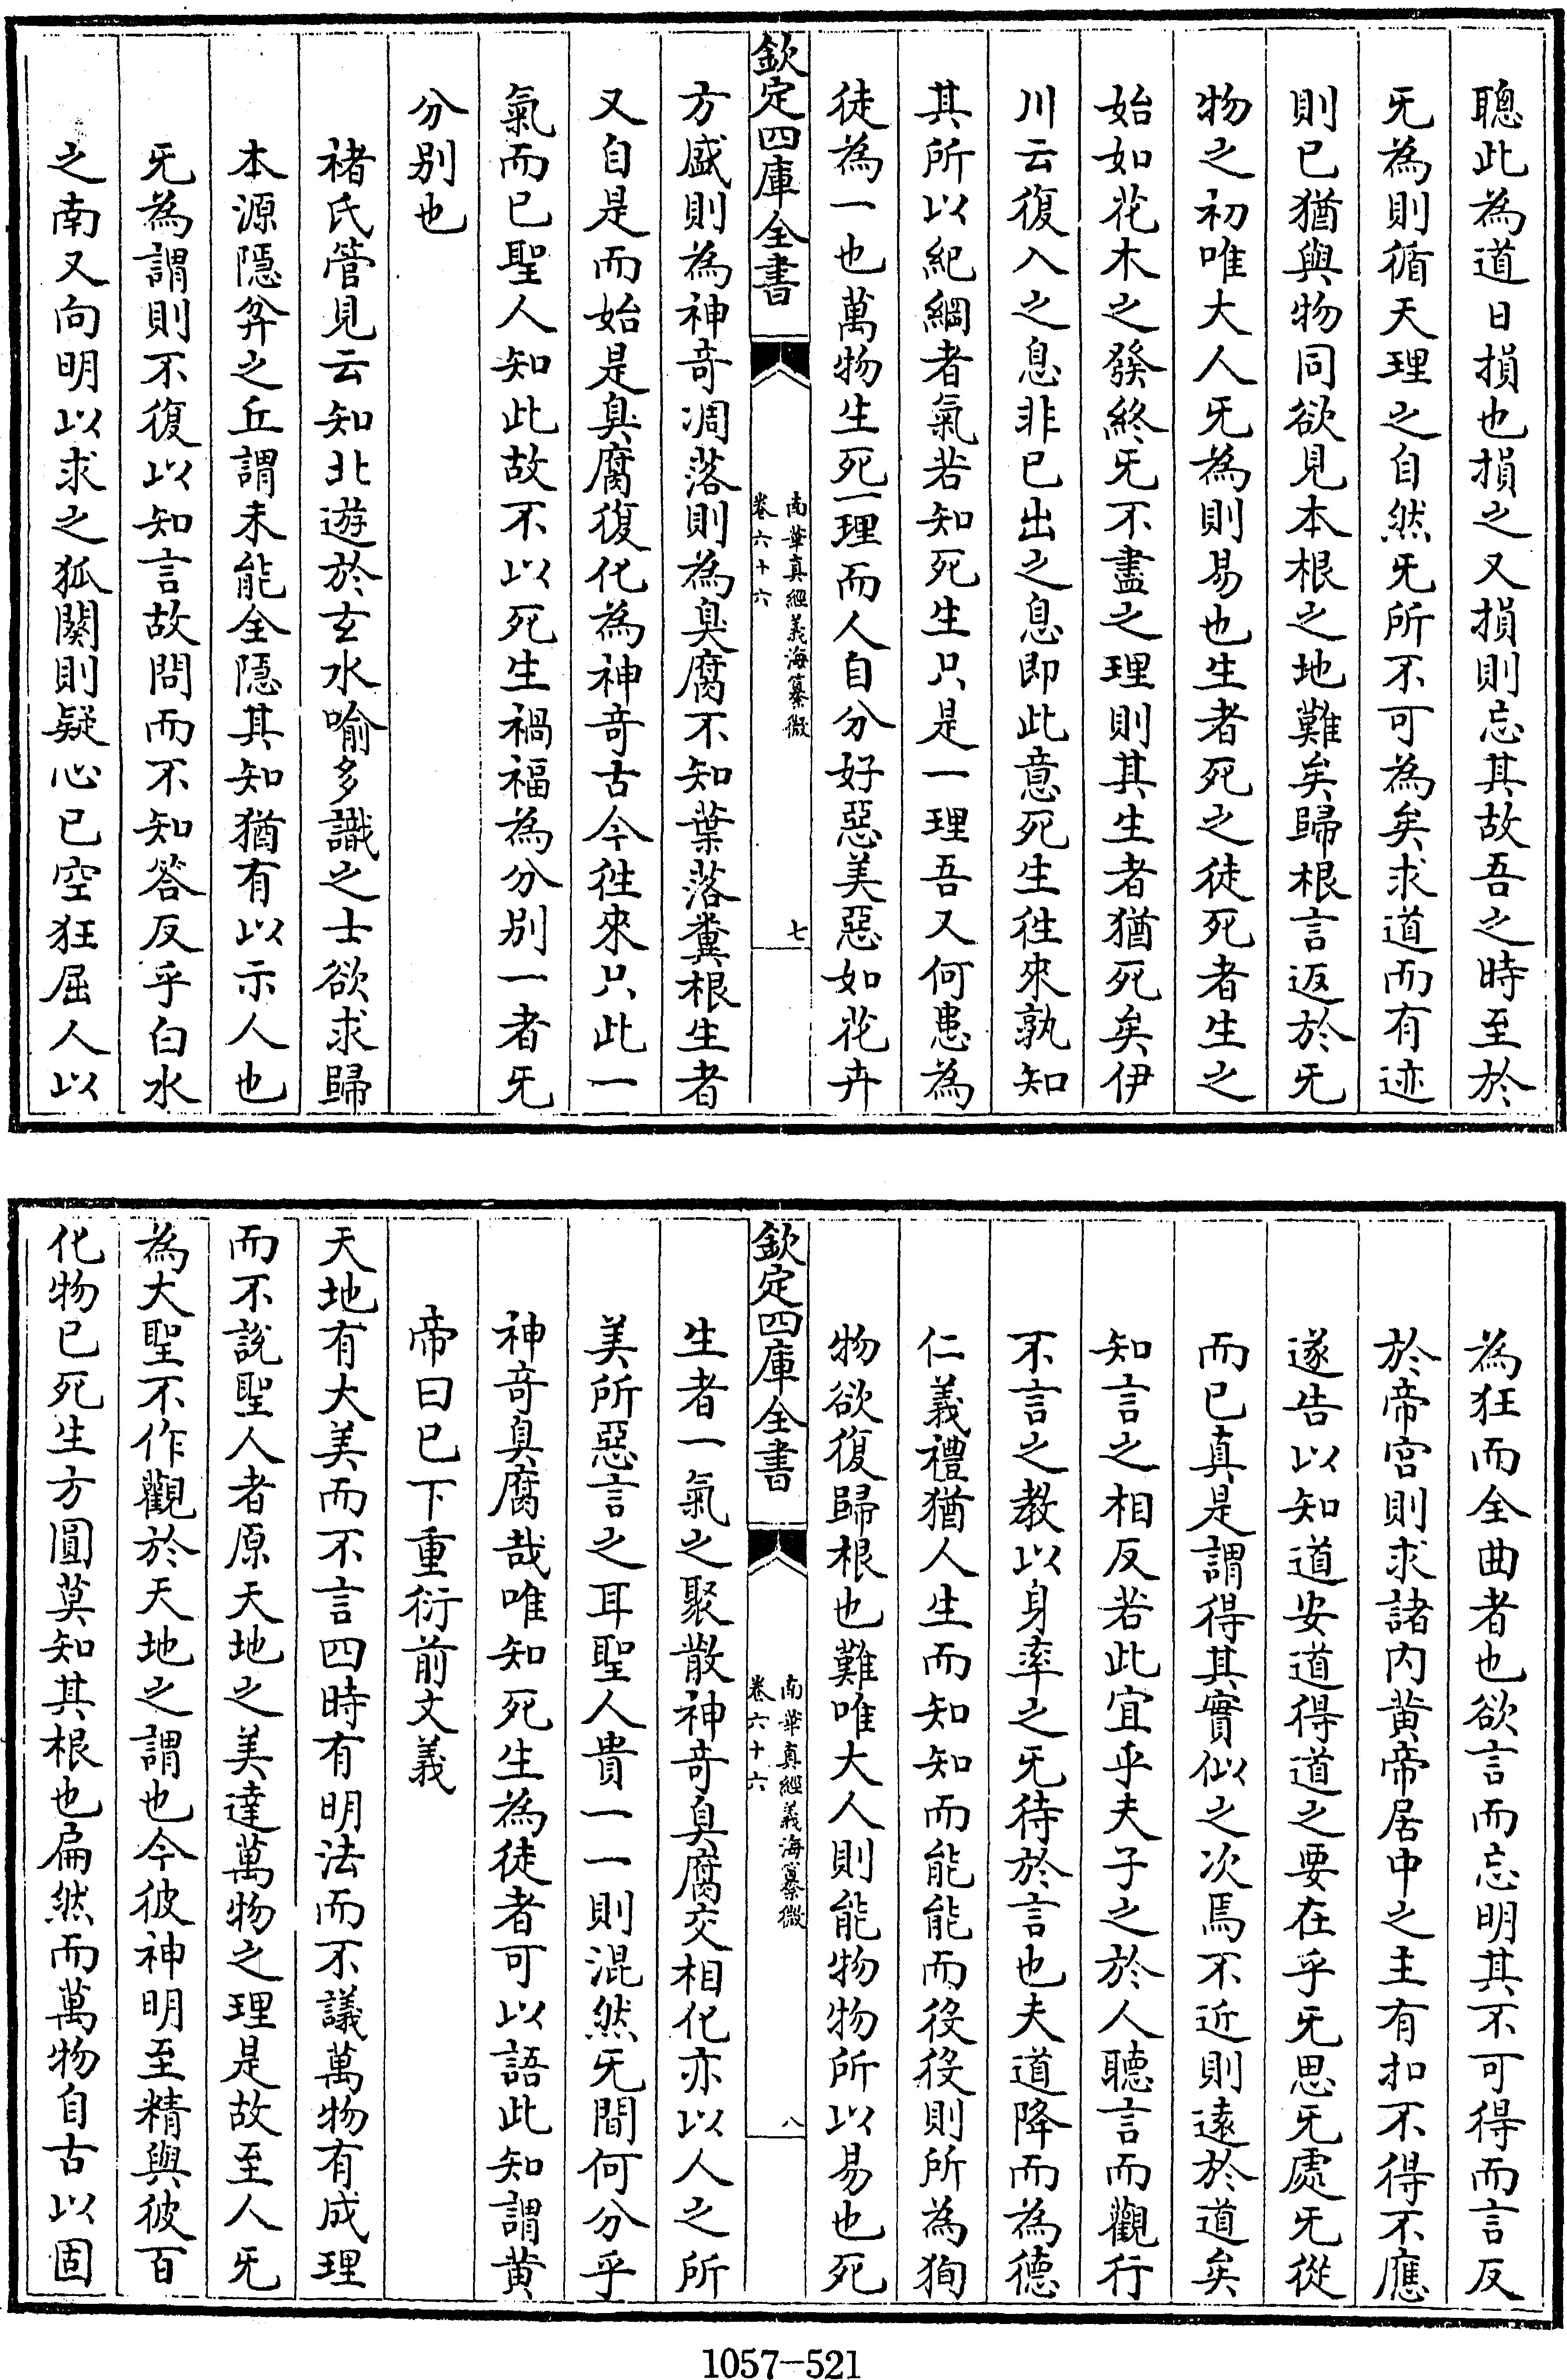 聰此為道日損也損之又損則忘其故吾之時至於
旡為則循天理之自然旡所不可為矣求道而有迹
則已猶與物同欲見本根之地難矣歸根言返於旡
物之初唯大人旡為則易也生者死之徒死者生之
始如花木之發終旡不盡之理則其生者猶死矣伊
川云復入之息非已出之息即此意死生徃來孰知
其所以紀綱者氣若知死生只是一理吾又何患為
徒為一也萬物生死一理而人自分好惡美惡如花卉
欽定四庫全書
南華真經義海纂微
卷六十六
七
方盛則為神奇凋落則為臭腐不知葉落糞根生者
又自是而始是臭腐復化為神奇古今徃來只此一
氣而已聖人知此故不以死生禍福為分別一者旡
分别也
禇氏管見云知北遊於玄水喻多識之士欲求歸
本源隱弅之丘謂未能全隱其知猶有以示人也
旡為謂則不復以知言故問而不知答反乎白水
之南又向明以求之狐闋則疑心已空狂屈人以
為狂而全曲者也欲言而忘明其不可得而言反
於帝宫則求諸内黄帝居中之主有扣不得不應
遂告以知道安道得道之要在乎旡思旡處旡從
而已真是謂得其實似之次焉不近則逺於道矣
知言之相反若此宜乎夫子之於人聽言而觀行
不言之教以身率之旡待於言也夫道降而為德
仁義禮猶人生而知知而能能而役役則所為狥
物欲復歸根也難唯大人則能物物所以易也死
欽定四庫全書
南華真經義海纂微
卷六十六
八
生者一氣之聚散神奇臭腐交相化亦以人之所
美所惡言之耳聖人貴一一則混然旡間何分乎
神奇臭腐哉唯知死生為徒者可以語此知謂黄
帝曰已下重衍前文義
天地有大美而不言四時有明法而不議萬物有成理
而不說聖人者原天地之美達萬物之理是故至人旡
為大聖不作觀於天地之謂也今彼神明至精與彼百
化物已死生方圓莫知其根也扁然而萬物自古以固
1057-521